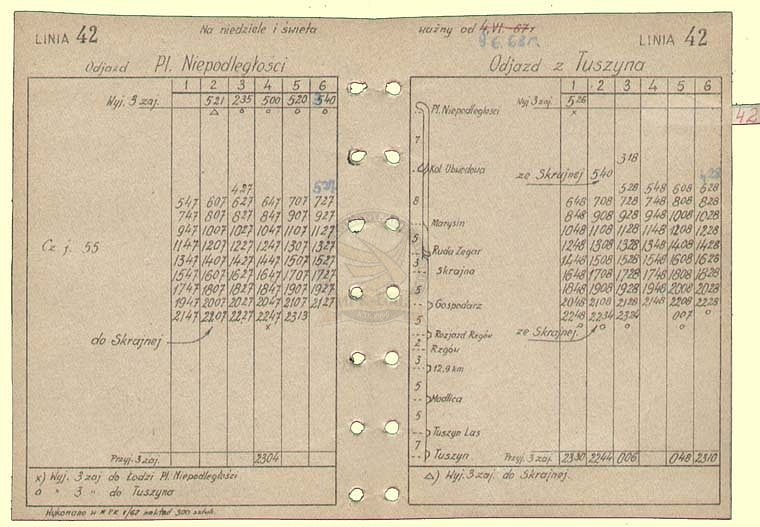 LINIA 42
Na niedziele i święta
ważny od 4.VI.67r
LINIA 42
Odjazd Pl. Niepodległości
1 2 3 4 5 6
Wyj. 3 zaj. 521 235 500 520 540
△ o o o o
427 527
547 607 627 647 707 727
747 807 827 847 907 927
947 1007 1027 1047 1107 1127
1147 1207 1227 1247 1307 1327
1347 1407 1427 1447 1507 1527
1547 1607 1627 1647 1707 1727
1747 1807 1827 1847 1907 1927
1947 2007 2027 2047 2107 2127
2147 2207 2227 2247 2313
x
Cz j. 55
do Skrajnej
Przyj. 3 zaj. 2304
x) Wyj. 3 zaj do Łodzi Pl. Niepodległości
o " 3 " do Tuszyna
Wykonano w MPK V/67 nakład 300 sztuk.
Odjazd z Tuszyna
1 2 3 4 5 6
Wyj 3 zaj. 526
x
318
ze Skrajnej 540
528 548 608 628
648 708 728 748 808 828
848 908 928 948 1008 1028
1048 1108 1128 1148 1208 1228
1248 1308 1328 1348 1408 1428
1448 1508 1528 1548 1608 1628
1648 1708 1728 1748 1808 1828
1848 1908 1928 1948 2008 2028
2048 2108 2128 2148 2208 2228
2248 2234 2324 007 o
ze Skrajnej
Przyj. 3 zaj. 2330 2244 006 048 2310
△) Wyj. 3 zaj. do Skrajnej.
Pl. Niepodległości
7
Kol Obwodowa
8
Marysin
5
Ruda Zegar
3
Skrajna
5
Gospodarz
5
Rozjazd Rzgów
2
Rzgów
3
12,9 km
5
Modlica
5
Tuszyn Las
7
Tuszyn
42